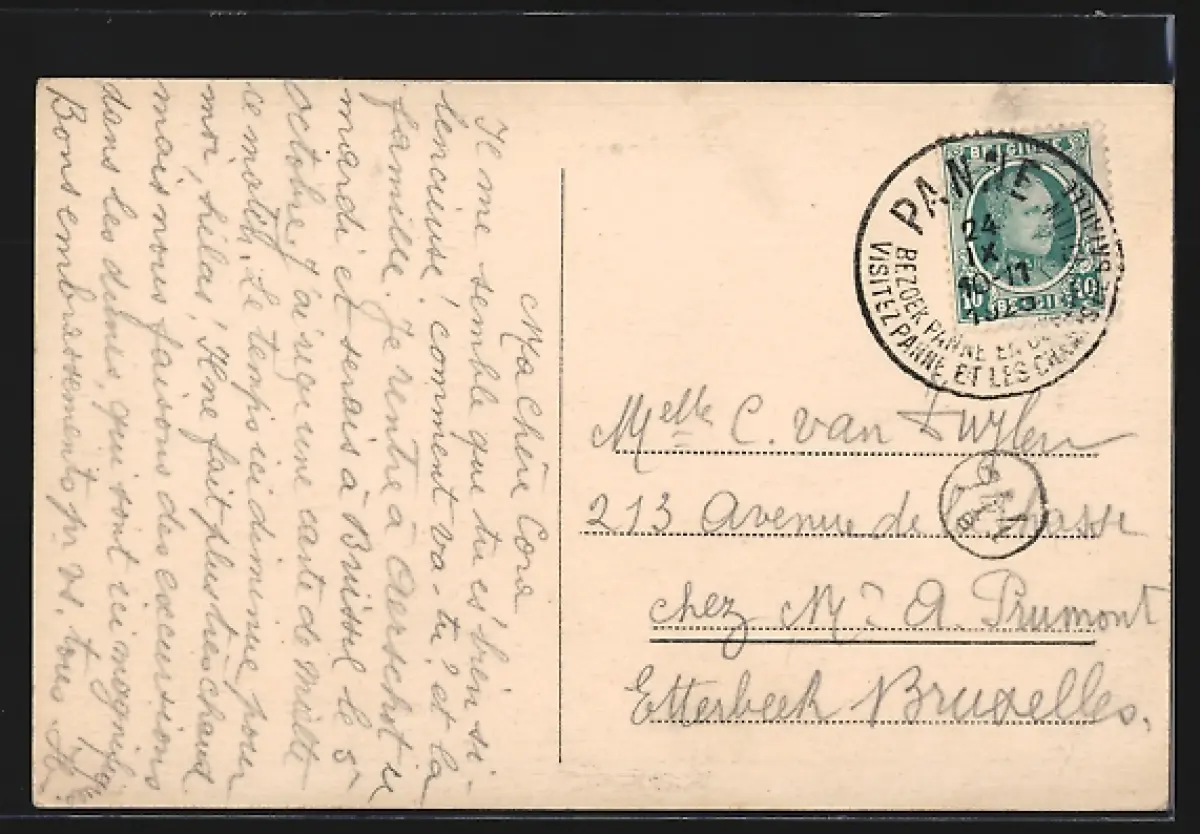 Ma chère Cora
Il me semble que tu es bien si-
lencieuse! comment va-tu? et la
famille. Je rentre à Aerschot ce
mardi et serais à Bruissel le 5
octobre, j'ai reçu une carte de
ce matin. Le temps ici diminue pour
moi, hélas! Il ne fait plus très chaud
mais nous faisons des excursions
dans les dunes, qui sont ici magnif.
Bons embrassements pr vs. tous
PANNE
24
IX
10-11
BEZOEK PANNE EN
VISITEZ PANNE ET LES
BELGIQUE
10
10
BELGIE
Melle C. van Zuylen
213 Avenue de la Chasse
chez Mr A. Prumont
Etterbeek Bruxelles.